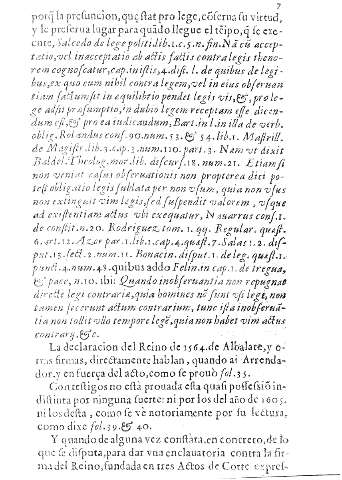 7
porq̃ la presuncion, que stat pro lege, cõserua su virtud,
y le preserua lugar para quãdo llegue el tẽipo, q̃ se exe-
cute, Salcedo de lege politi. lib. 1. c. 5. n. fin. Nã cũ accep-
tatio, vel inacceptatio ab actis factis contra legis theno-
rem cognoscatur, cap. in istis, 4. dist. l. de quibus de legi-
bus, ex quo cum nihil contra legem, vel in eius obseruen
tiam factum sit in equilibrio pendet legis vis, &, pro le-
ge adsit præsumptio, in dubio legem receptam esse dicen-
dum est, & pro ea iudicandum, Bart. in l. in illa de verb.
oblig. Rolandus cons. 90. num. 53. & 54. lib. 1. Mastrill.
de Magistr. lib. 3. cap. 3. num. 110. part. 3. Nam vt dixit
Baldel. Theolog. mor. lib. discurs. 18. num. 21. Etiam si
non veniat casus obseruationis non propterea dici po-
test obligatio legis sublata per non vsum, quia non vsus
non extinguit vim legis, sed suspendit valorem, vsque
ad existentiam actus vbi exequatur, Nauarrus cons. 1.
de constit. n. 20. Rodriguez tom. 1. qq. Regular. quæst.
6. art. 12. Azor par. 1. lib. 1. cap. 4. quæst. 7. Salas 1. 2. dis-
put. 13. sect. 2. num. 11. Bonacin. disput. 1. de leg. quæst. 1.
punct. 4. num. 48. quibus addo Felin. in cap. 1. de tregua,
& pace, n. 10. ibi: Quando inobseruantia non repugnat
directe legi contrariæ, quia homines nõ sunt vsi lege, non
tamen fecerunt actum contrarium, tunc ista inobserua-
tia non tollit vllo tempore legẽ, quia non habet vim actus
contrarij. &c.
La declaracion del Reino de 1564. de Albalate, y o-
tras firmas, directamente hablan, quando ai Arrenda-
dor, y en fuerça del acto, como se prouò fol. 35.
Con testigos no està prouada esta quasi possessiõ in-
distinta por ninguna suerte: ni por los del año de 1605.
ni los desta, como se vè notoriamente por su lectura,
como dixe fol. 39. & 40.
Y quando de alguna vez constàra, en concreto, de lo
que se disputa, para dar vna enclauatoria contra la fir-
ma del Reino, fundada en tres Actos de Corte expres-